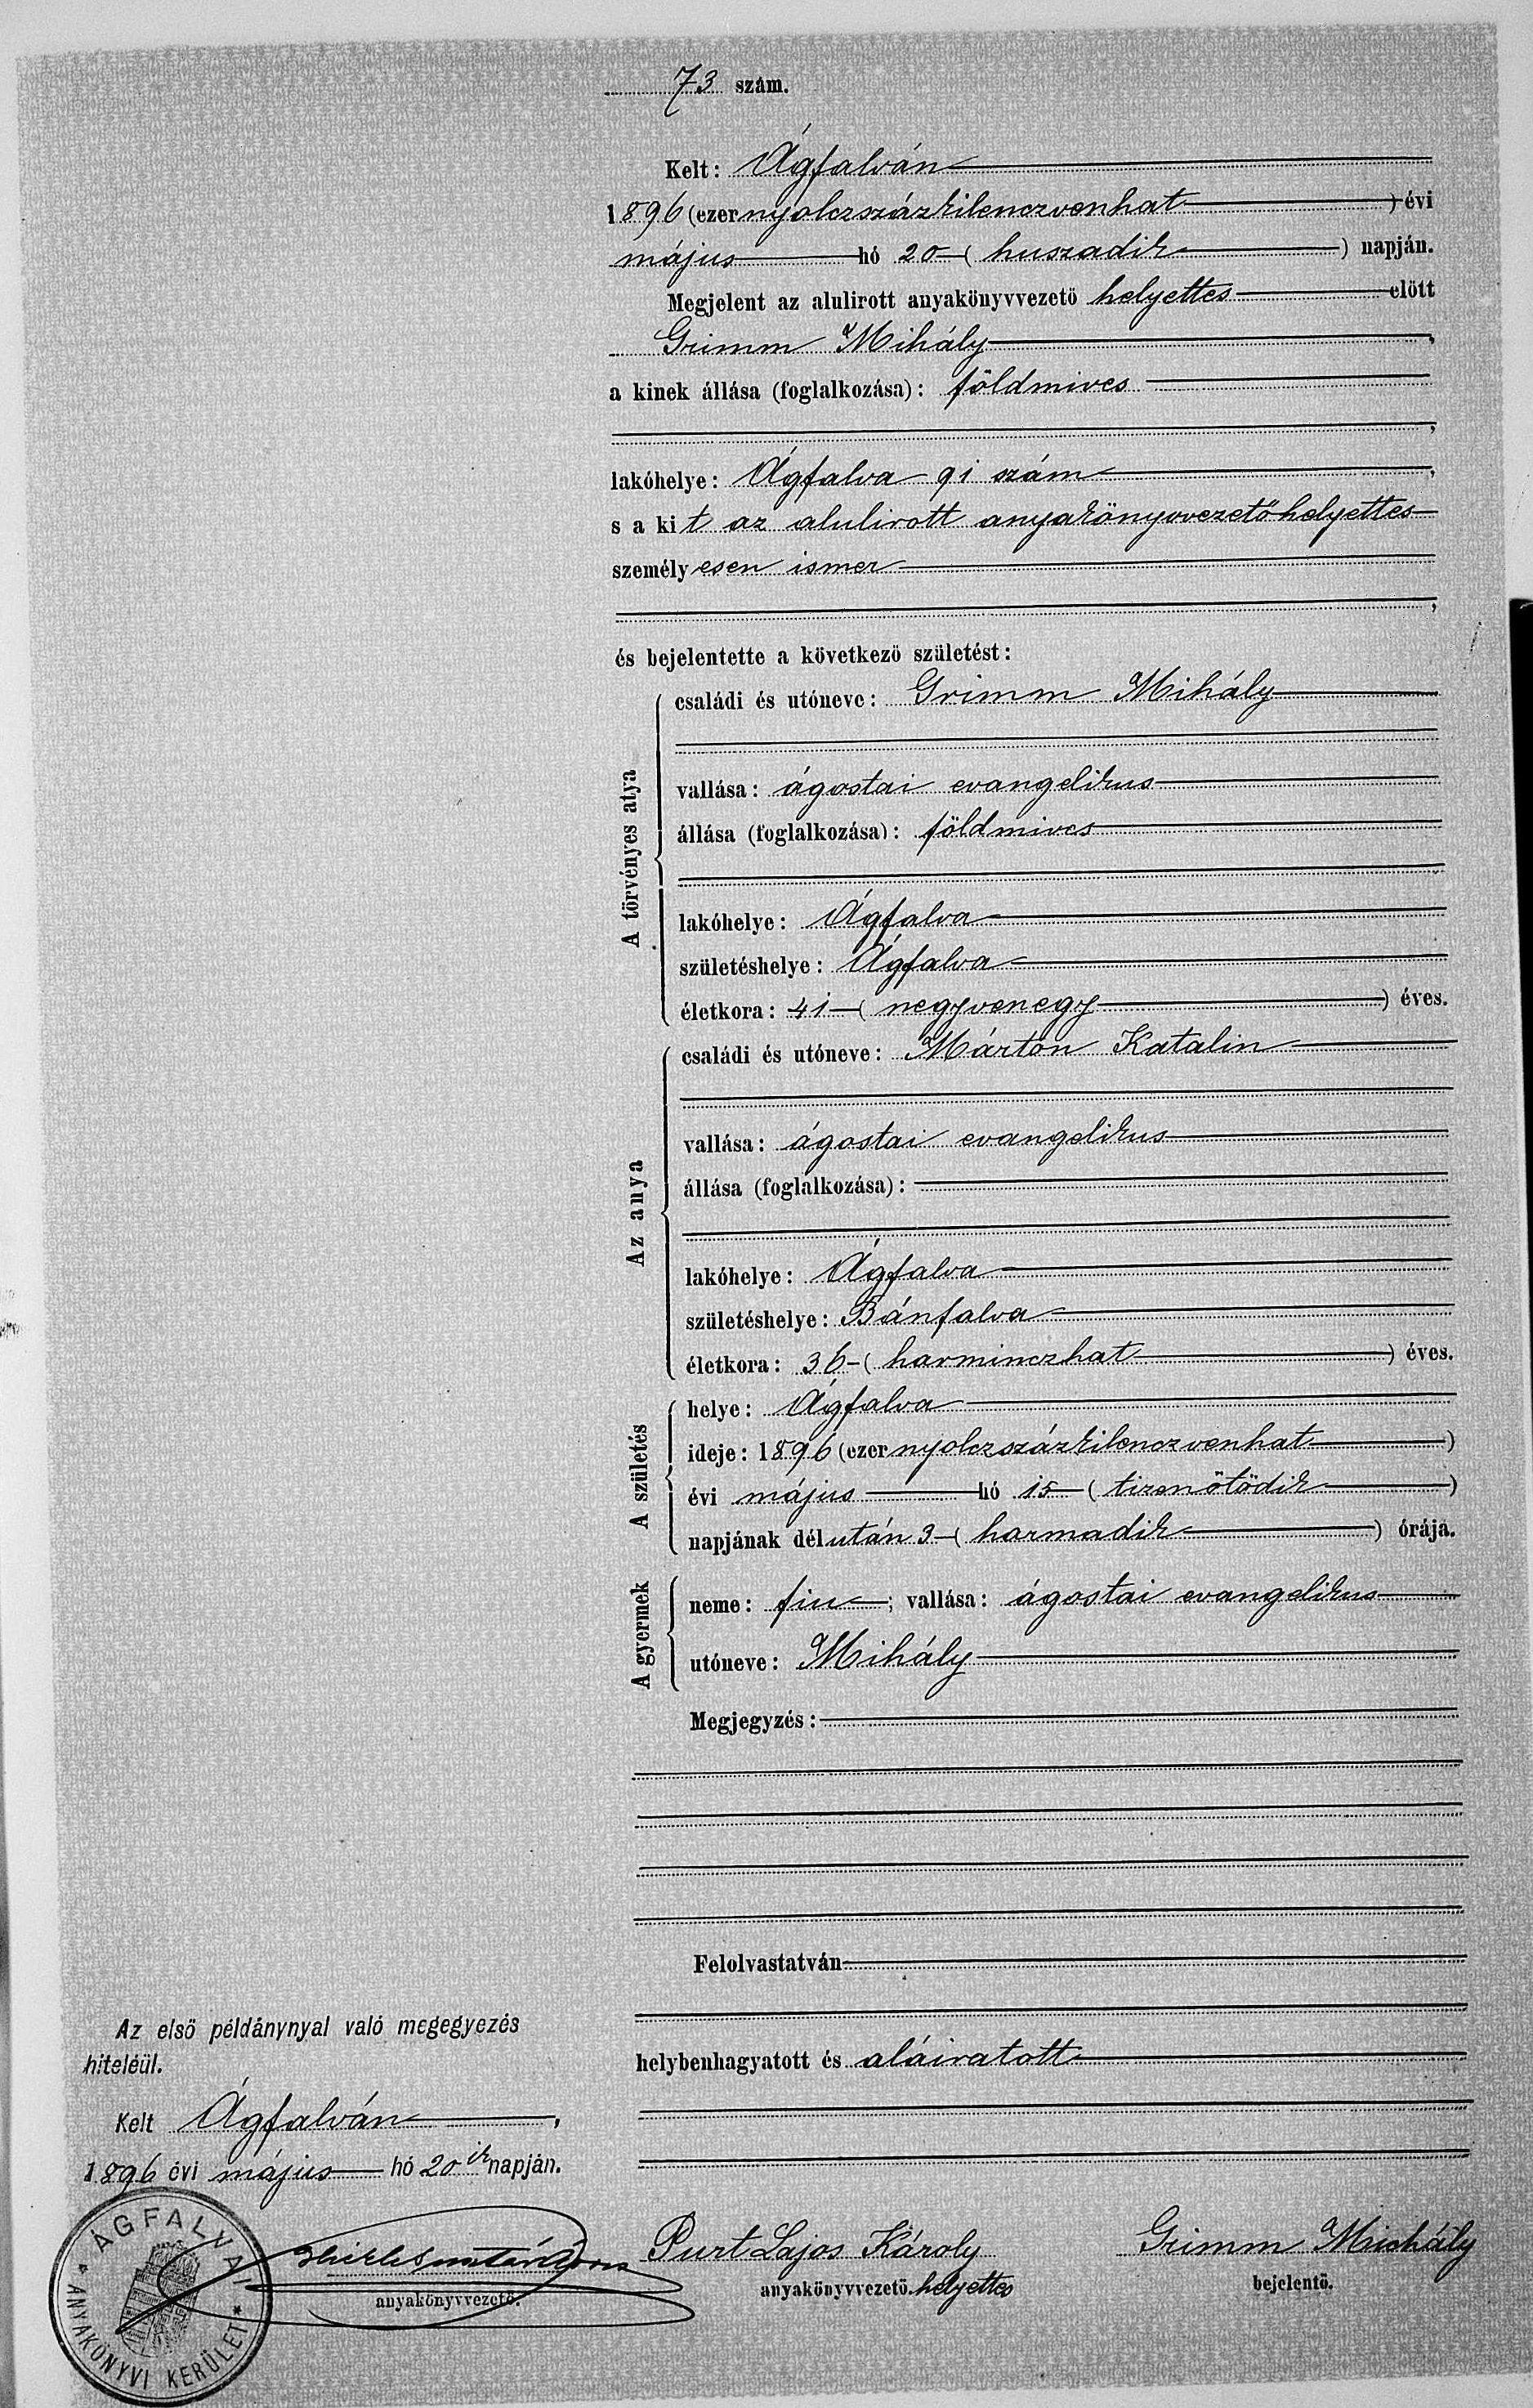 73 szám.
Kelt: Ágfalván
1896 (ezer nyolczszázkilenczvenhat) évi
május hó 20 (huszadik) napján.
Megjelent az alulirott anyakönyvvezető helyettes előtt
Grimm Mihály,
a kinek állása (foglalkozása): földmives
,
lakóhelye: Ágfalva 91 szám,
s a kit az alulirott anyakönyvvezetőhelyettes
személyesen ismer
,
és bejelentette a következő születést:
A törvényes atya
családi és utóneve: Grimm Mihály
vallása: ágostai evangelikus
állása (foglalkozása): földmives
lakóhelye: Ágfalva
születéshelye: Ágfalva
életkora: 41 (negyvenegy) éves.
Az anya
családi és utóneve: Márton Katalin
vallása: ágostai evangelikus
állása (foglalkozása):
lakóhelye: Ágfalva
születéshelye: Bánfalva
életkora: 36 (harminczhat) éves.
A születés
helye: Ágfalva
ideje: 1896 (ezer nyolczszázkilenczvenhat)
évi május hó 15 (tizenötödik)
napjának délután 3 (harmadik) órája.
A gyermek
neme: fiu; vallása: ágostai evangelikus
utóneve: Mihály
Megjegyzés:
Felolvastatván
helybenhagyatott és aláiratott
Az első példánynyal való megegyezés
hiteléül.
Kelt Ágfalván,
1896 évi május hó 20ik napján.
anyakönyvvezető.
Purt Lajos Károly
anyakönyvvezető.helyettes
Grimm Michály
bejelentő.
ÁGFALVAI
ANYAKÖNYVI KERÜLET